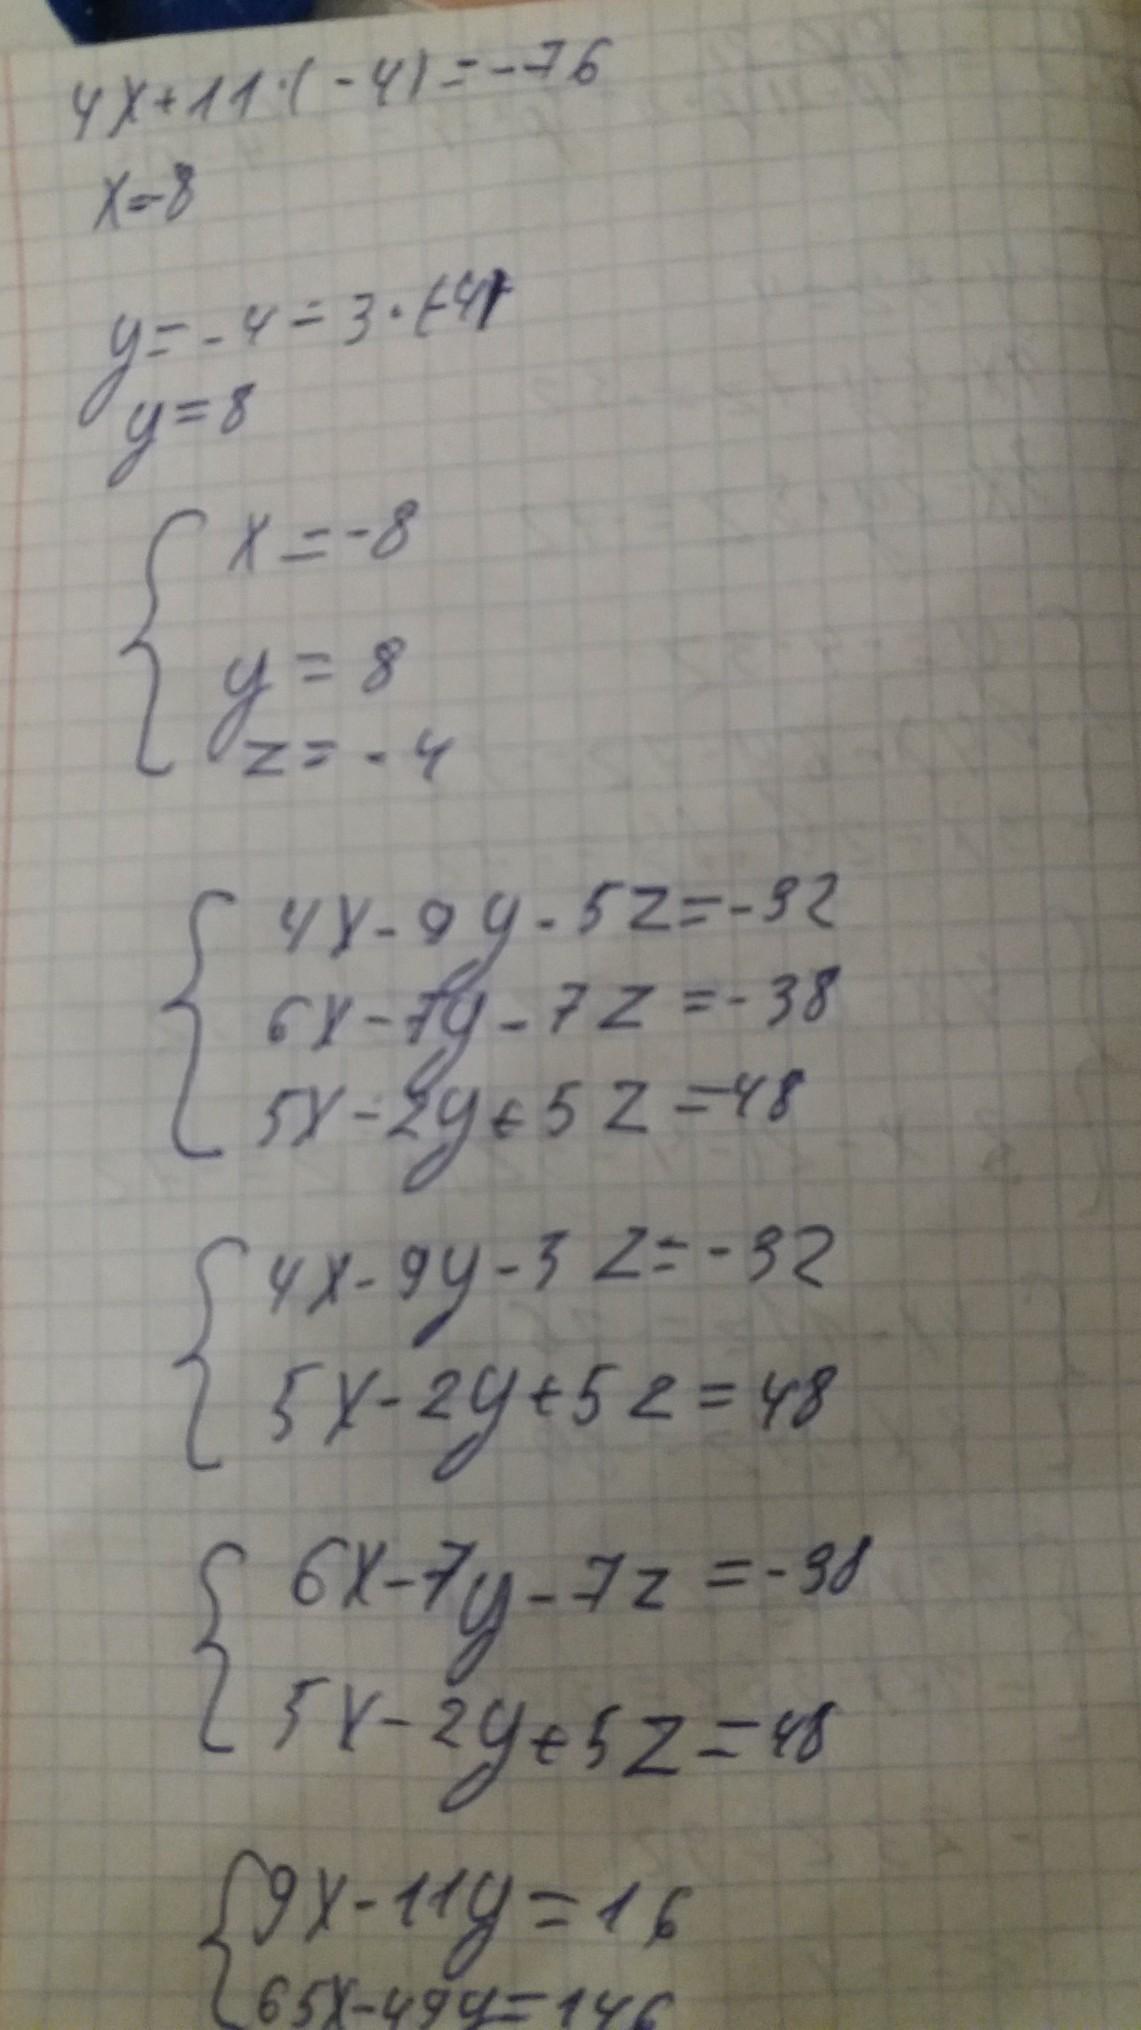 4x+11·(-4)=-76
x=-8
y=-4=3·(-4)
y=8
x=-8
y=8
z=-4
4x-9y-5z=-32
6x-7y-7z=-38
5x-2y+5z=48
4x-9y-3z=-32
5x-2y+5z=48
6x-7y-7z=-38
5x-2y+5z=48
9x-11y=16
65x-49y=146